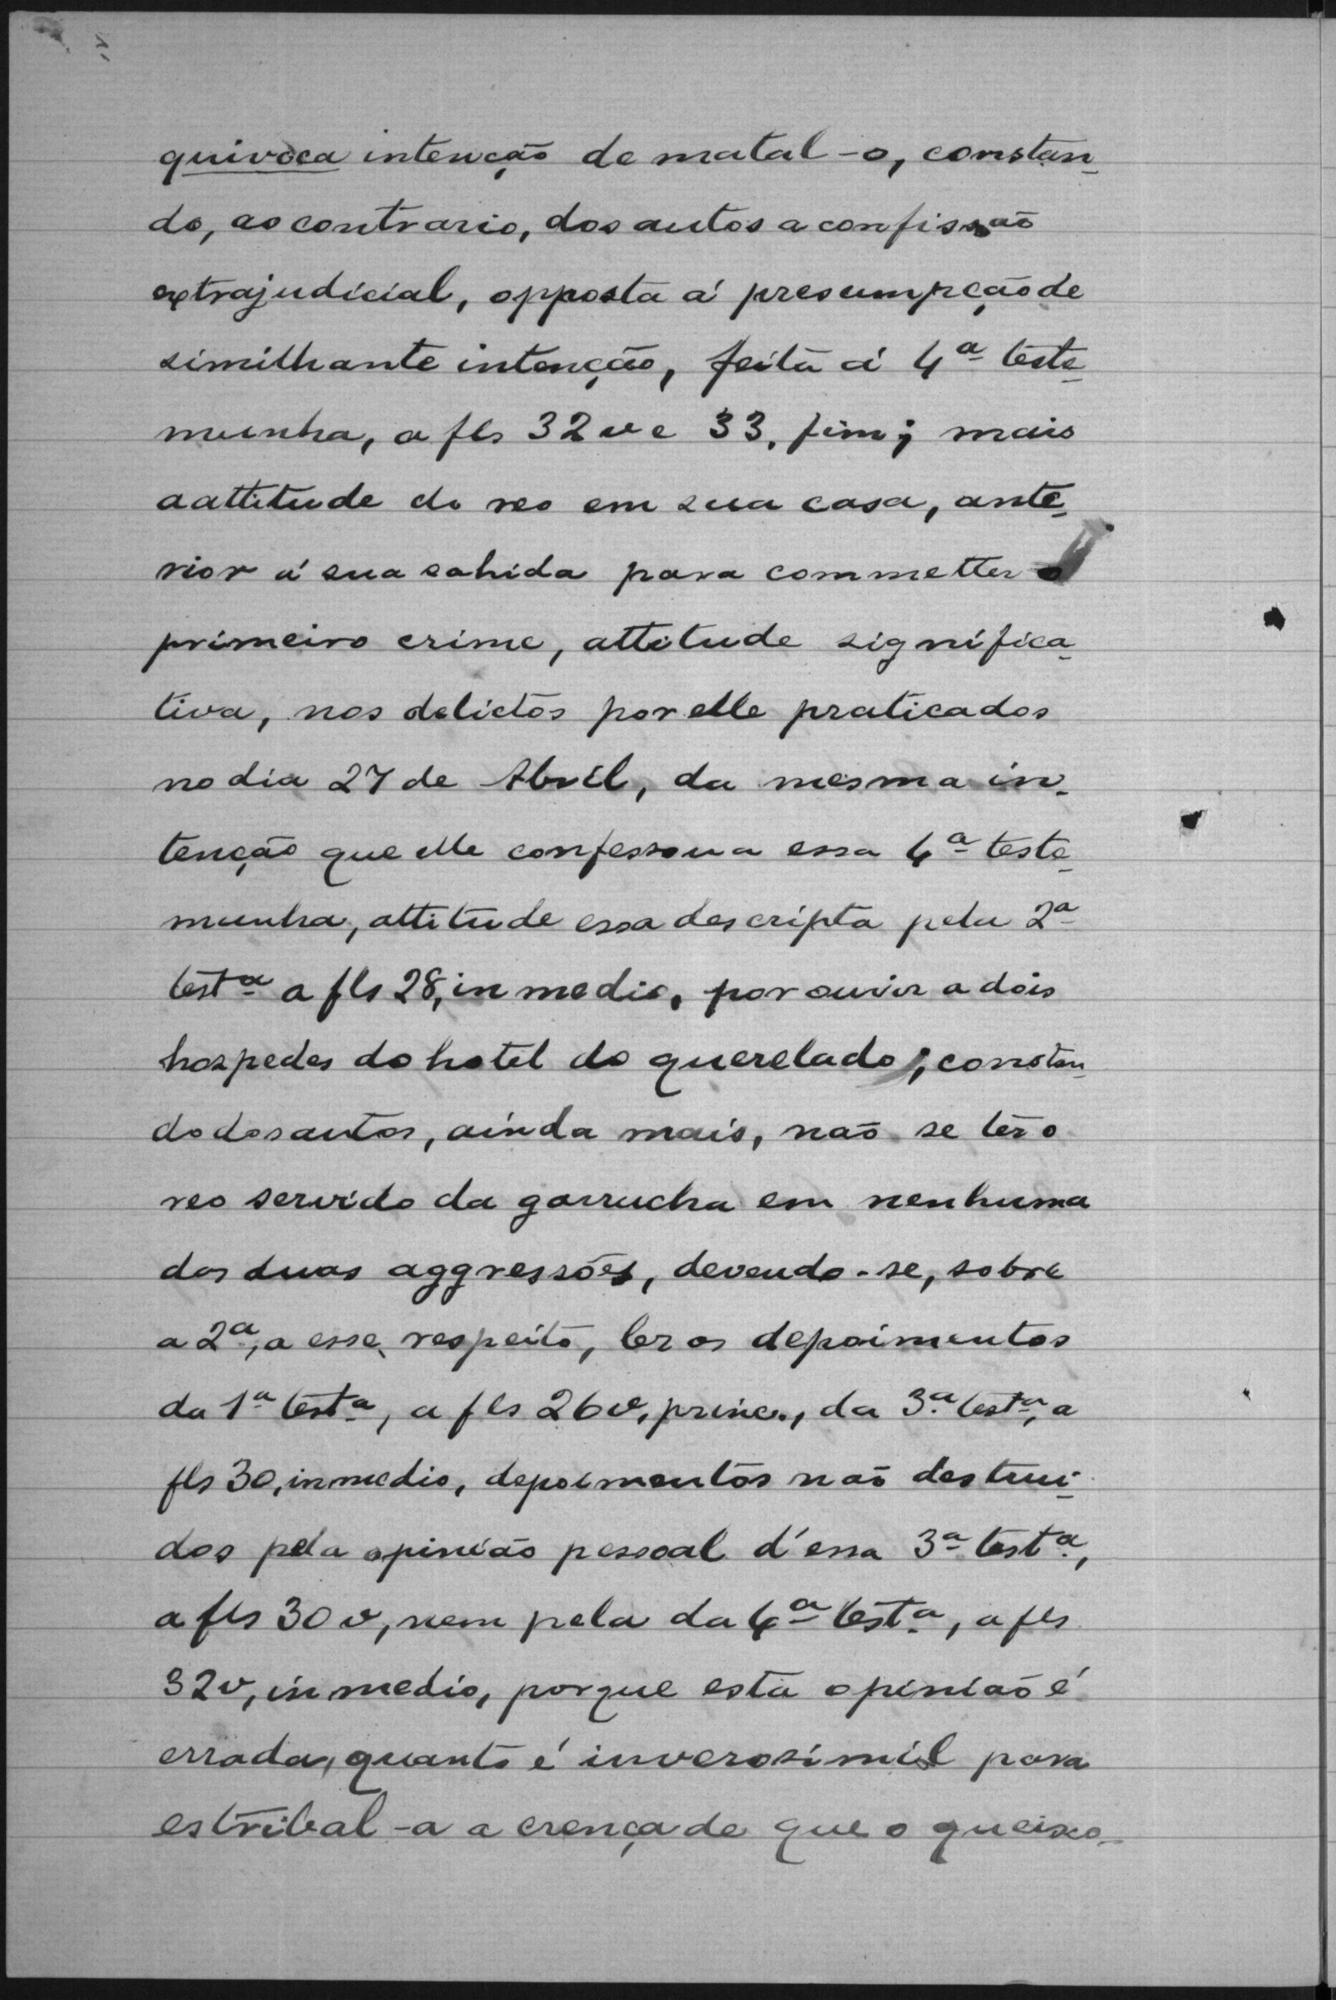 quivoca intenção de matal-o, constan-
do, ao contrario, dos autos a confissão
extrajudicial, opposta á presumpção de
similhante intenção, feita á 4ª teste-
munha, a fls 32 v e 33, fim; mais
a attitude do reo em sua casa, ante-
rior á sua sahida para commetter o
primeiro crime, attitude significa-
tiva, nos delictos por elle praticados
no dia 27 de Abril, da mesma in-
tenção que elle confessou a essa 4ª teste-
munha, attitude essa descripta pela 2ª
testª a fls 28, in medio, por ouvir a dois
hospedes do hotel do querelado; constan-
do dos autos, ainda mais, não se ter o
reo servido da garrucha em nenhuma
das duas aggressões, devendo-se, sobre
a 2ª, a esse respeito, ler os depoimentos
da 1ª testª, a fls 26v, princ., da 3ª testª, a
fls 30, in medio, depoimentos não destrui-
dos pela opinião pessoal d'essa 3ª testª,
a fls 30 v, nem pela da 4ª testª, a fls
32v, in medio, porque esta opinião é
errada, quanto é inverosimil para
estribal-a a crença de que o queixo-